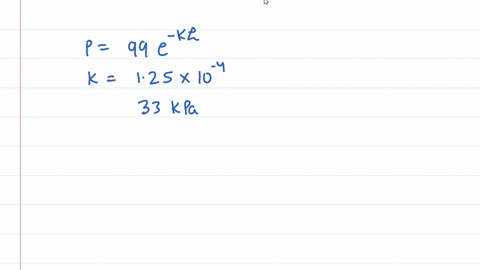 P = 99 e^{-kh}
K = 1.25 × 10^{-4}
33 KPa